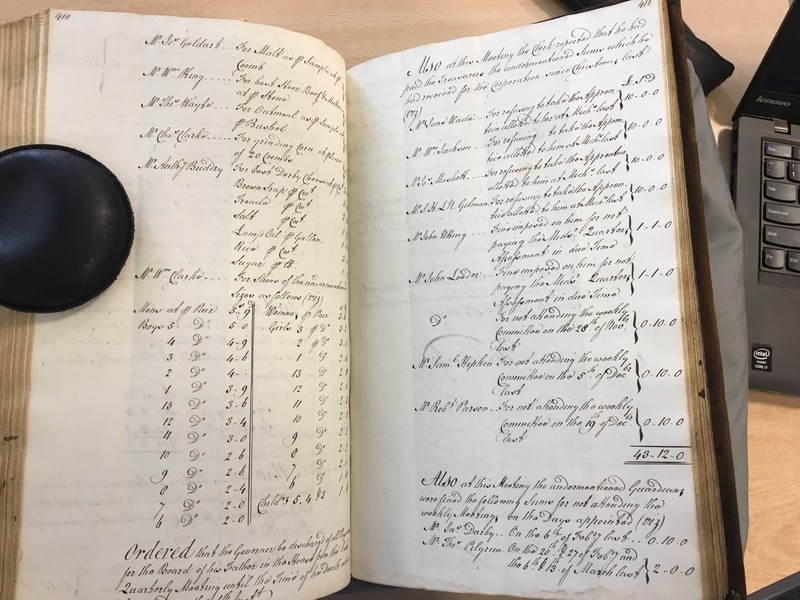 410
Mr. Jos. Goldart... For Malt as pr Sample at pr
Coomb
Mr. Wm. King...... For best Steer Beef &
at pr Stone
Mr. Thos. Wayte... For Oatmeal as pr Sample
pr Bushel
Mr. Chas. Clarke... For grinding Corn at
of 20 Coombs
Mr. Anthy. Buddry For best Derby Cheese at pr Ct.
Brown Soap pr Cwt.
Treacle pr Cwt.
Salt pr Cwt.
Lamp Oil pr Gallon
Rice pr Cwt.
Sugar pr lb.
Mr. Wm. Clarke... For Shoes of the
Sizes as follows (viz)
Mens at pr Pair 5s-9 Womens pr Pair
Boys 5 Do. 5-0 Girls 3 pr Do.
4 Do. 4-9 2 pr Do.
3 Do. 4-6 1 Do.
2 Do. 4- 13 Do.
1 Do. 3-9 12 Do.
13 Do. 3-6 11 Do.
12 Do. 3-4 10 Do.
11 Do. 3-0 9 Do.
10 Do. 2-8 8 Do.
9 Do. 2-6 7 Do.
8 Do. 2-4 6 Do.
7 Do. 2-0 Childs. 5. 4 & 3
6 Do. 2-0
Ordered that the Governor be discharged of all
for the Board of his Father in the House from this
Quarterly Meeting until the Time of his
411
Also at this Meeting the Clerk reported that he had
paid the Treasurer the undermentioned Sums which he
had received for the Corporation since Christmas last
(viz) £ s d
Mr. Jane Wade.. For refusing to take the Appren
tice allotted to her at Mich: last } 10-0-0
Mr. Wm. Jackson... For refusing to take the Appren
tice allotted to him at Mich: last } 10-0-0
Mr. Jo. Muskett... For refusing to take the Apprentice
allotted to him at Mich: last } 10-0-0
Mr. Gilman For refusing to take the Appren
tice allotted to him at Mich: last } 10-0-0
Mr. John Utting... Fine imposed on him for not
paying the Meds: Quarter
Assessment in due Time } 1-1-0
Mr. John Lodder.. Fine imposed on him for not
paying the Meds: Quarter
Assessment in due Time } 1-1-0
Do. For not attending the weekly
Committee on the 28th. of Nov.
last } 0-10-0
Mr. Saml. Hipkin For not attending the weekly
Committee on the 5th. of Decr.
last } 0-10-0
Mr. Robt. Parson... For not attending the weekly
Committee on the 19th. of Decr.
last } 0-10-0
43-12-0
Also at this Meeting the undermentioned Guardians
were fined the following Sums for not attending the
weekly Meeting on the Days appointed (viz)
Mr. Jas. Darby... On the 6th of Feb'y last... 0-10-0
Mr. Thos. Pilgrim.. On the 20th. & 27 of Feb'y and
the 6th. & 13 of March last } 2-0-0
lenovo
Esc
Tab
CapsLock
Shift
Ctrl
intel